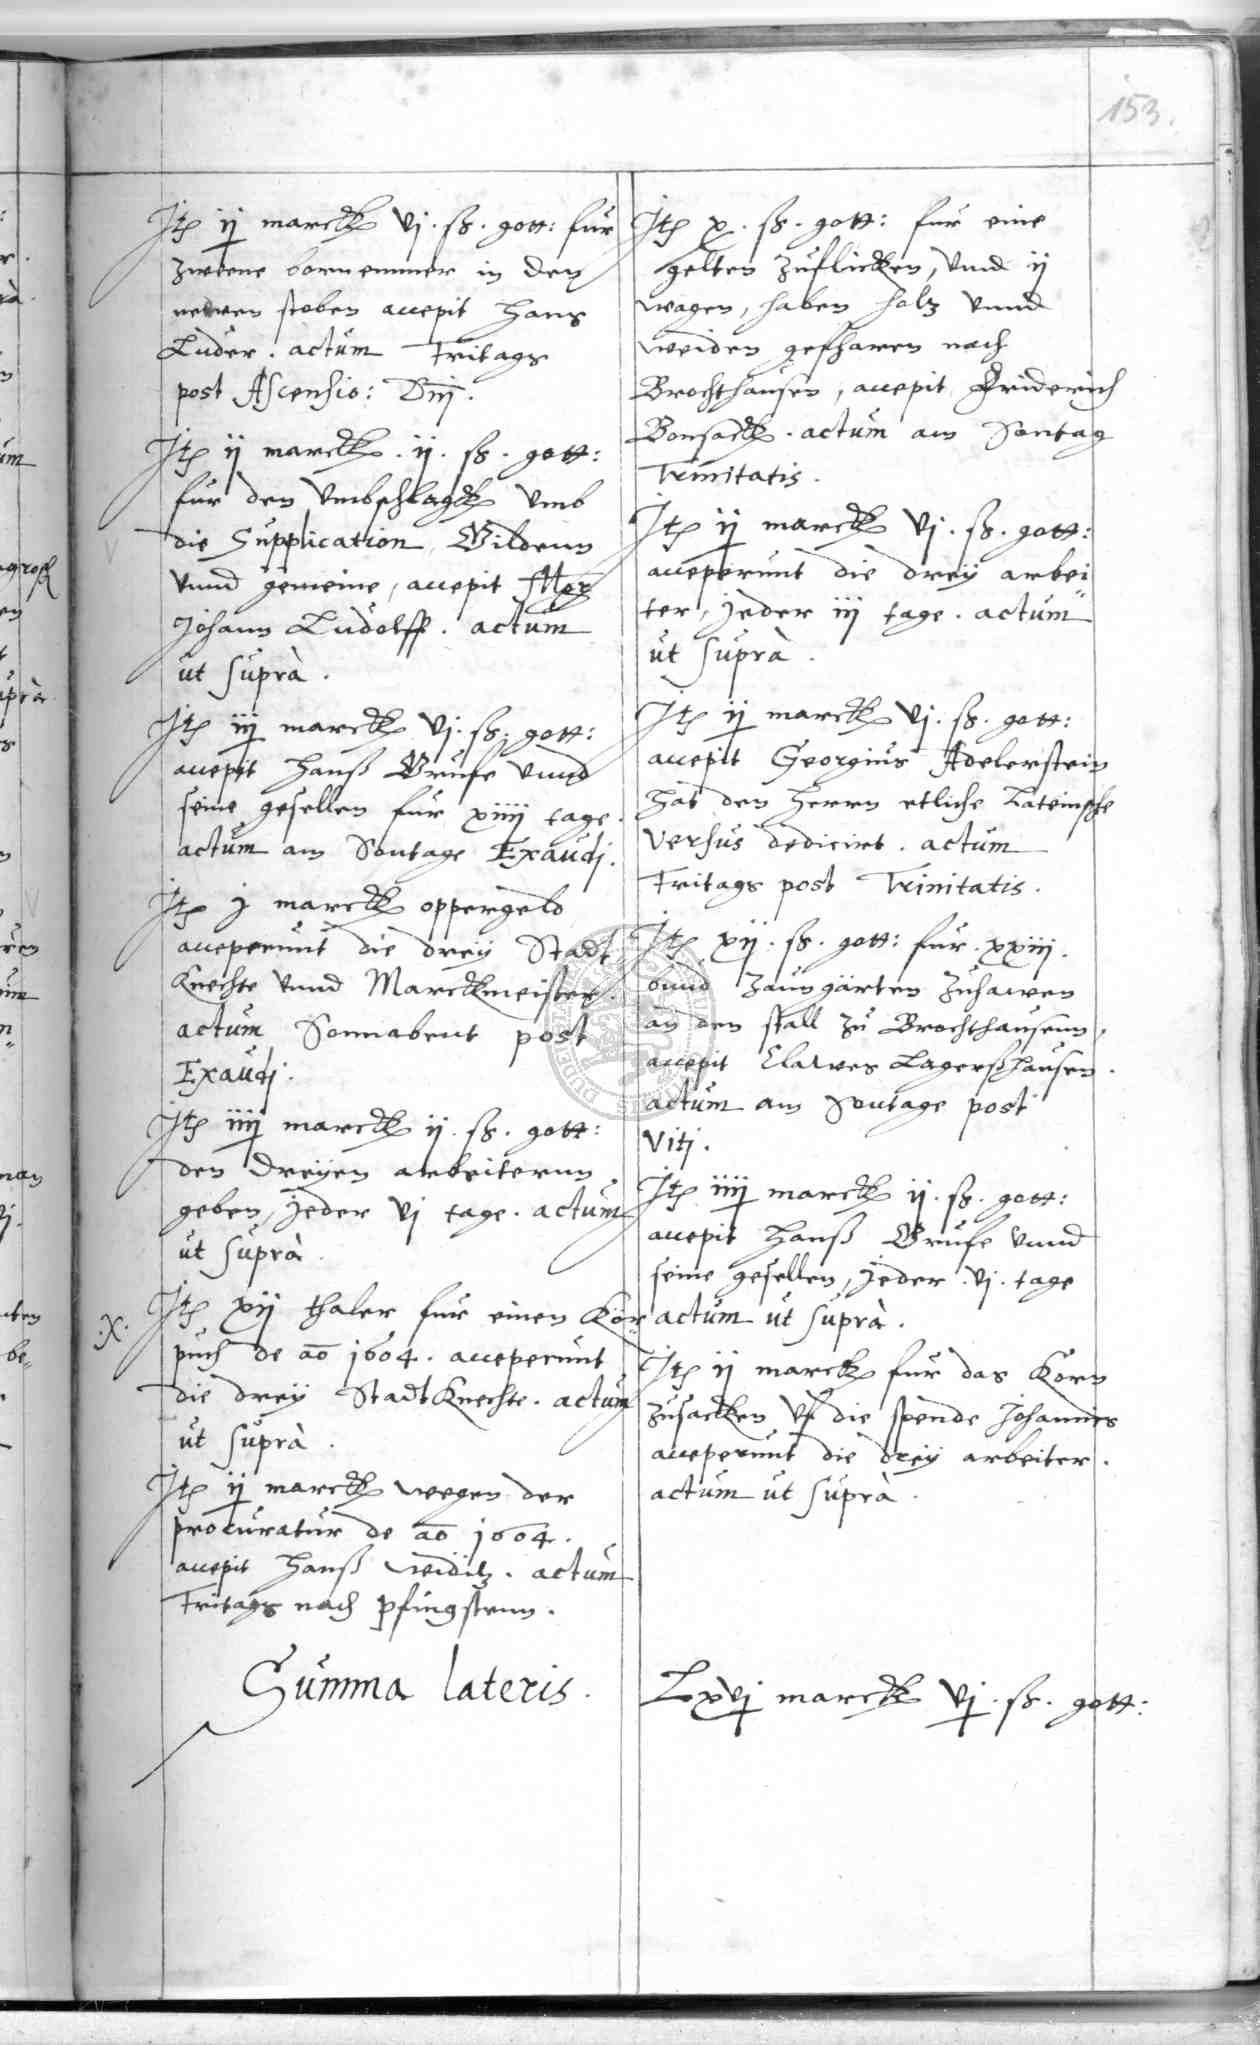 153.
Itē ij marck vj. ß. gott: fur
zweene bornemmer in den
newen stoben accepit Hans
Luder. actum Fritags
post Ascensio: Dnj.
Itē ij marck. ij. ß. gott:
fur den Umbschlagk umb
die Supplication Gildenn
unnd gemeine, accepit Mgr
Johann Ludolff. actum
ut suprà.
Itē iij marck vj. ß. gott:
accepit Hanß Grufe unnd
seine gesellen fur xiiij tage.
actum am Sontage Exaudj.
Itē j marck oppergeld
acceperunt die dreÿ Stadt
Knechte unnd Marckmeister.
actum Sonnabent post
Exaudj.
Itē iiij marck ij. ß. gott:
den dreÿen arbeiternn
geben, jeder vj tage. actum
ut suprà.
:X: Itē xij thaler fur einen Kör
puch de ao 1604. acceperunt
die dreÿ StadtKnechte. actum
ut suprà.
Itē ij marck wegen der
procuratur de ao 1604.
accepit Hanß weiditz. actum
Fritags nach pfingstenn.
Itē x. ß. gott: fur eine
gelten zuflicken, unnd ij
wagen, haben holz unnd
weiden gefharen nach
Brochthausen, accepit Friderich
Bonsack. actum am Sontag
Trinitatis.
Itē ij marck vj. ß. gott:
acceperunt die dreÿ arbei
ter, jeder iij tage. actum
ut suprà.
Itē ij marck vj. ß. gott:
accepit Georgius Adelerstein
hat den Herrn etliche Lateinsche
versus dedicirt. actum
Fritags post Trinitatis.
Itē xij. ß. gott: fur xxiij.
bund zaungärten zuhawen
an den stall zu Brochthausenn,
accepit Clawes Lagershausen.
actum am Sontage post
Vitj.
Itē iiij marck ij. ß. gott:
accepit Hanß Grufe unnd
seine gesellen, jeder vj. tage
actum ut suprà.
Itē ij marck fur das Korn
zusacken uf die spende Johannis
acceperunt die dreÿ arbeiter.
actum ut suprà.
Summa lateris. Lxvj marck vj. ß. gott: